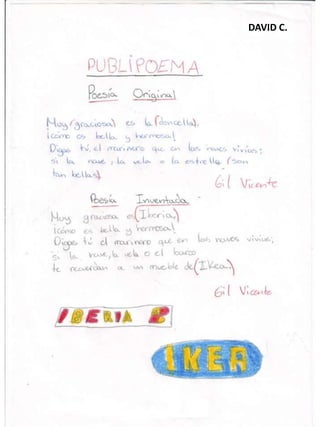 DAVID C.
PUBLIPOEMA
Poesía Original
Muy (graciosa) es la (doncella),
¡cómo es bella y hermosa!
Digas tú, el marinero que en las naves vivías:
si la nave, la vela o la estrella (son
tan bellas)
Gil Vicente
Poesía Inventada
Muy graciosa es (Iberia,)
¡cómo es bella y hermosa!
Digas tú el marinero que en las naves vivías,
si la nave, la vela o el barco
te recuerdan a un mueble de (Ikea)
Gil Vicente
IBERIA
IKEA